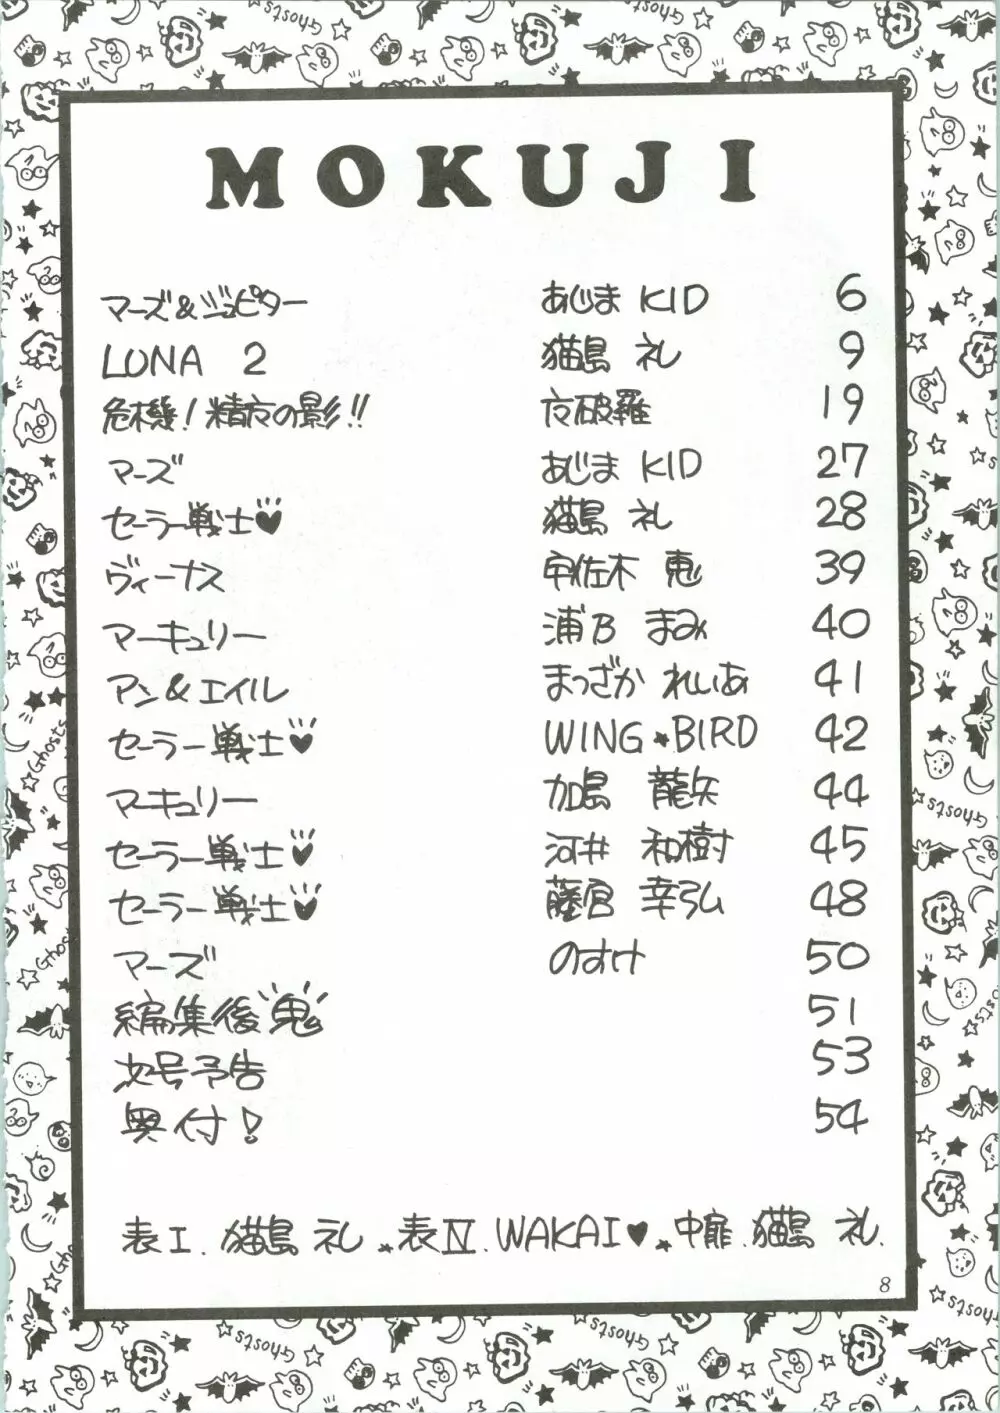 MOKUJI
マーズ&ジュピター あじま KID 6
LUNA 2 猫島 礼 9
危機!精友の影!! 夜破羅 19
マーズ あじま KID 27
セーラー戦士♥ 猫島 礼 28
ヴィーナス 宇佐木 恵 39
マーキュリー 浦乃 まみ 40
アン&エイル まっざか れいあ 41
セーラー戦士♥ WING★BIRD 42
マーキュリー 加島 龍矢 44
セーラー戦士♥ 河井 和樹 45
セーラー戦士♥ 藤宮 幸弘 48
マーズ のすけ 50
編集後鬼 51
次号予告 53
奥付! 54
表I. 猫島 礼 ★表IV. WAKAI♥ ★中扉. 猫島 礼.
8
Ghosts